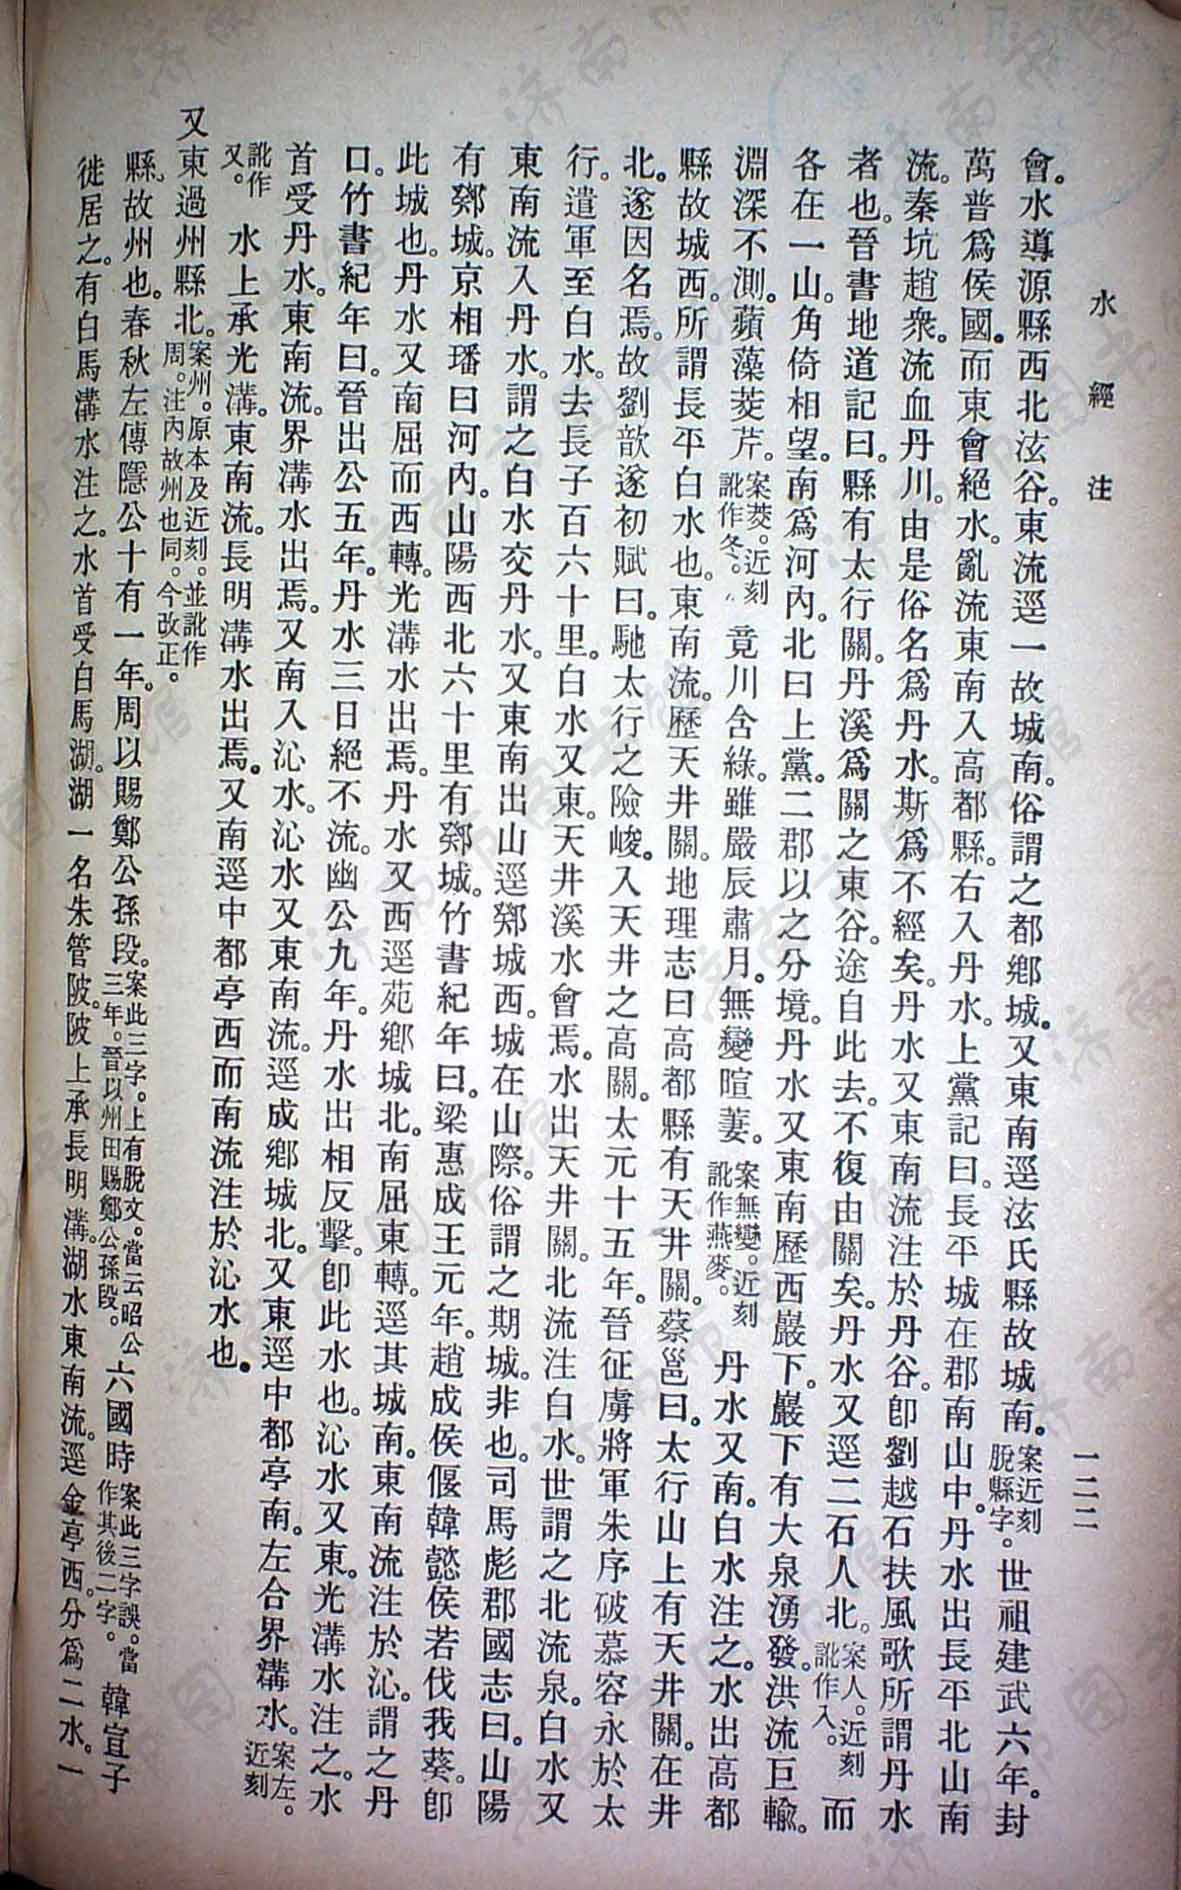 水經注
一二二
會。水導源縣西北泫谷。東流逕一故城南。俗謂之都鄉城。又東南逕泫氏縣故城南。案近刻脫縣字。世祖建武六年。封
萬普爲侯國。而東會絕水。亂流東南入高都縣。右入丹水。上黨記曰。長平城在郡南山中。丹水出長平北山南
流。秦坑趙衆。流血丹川。由是俗名爲丹水。斯爲不經矣。丹水又東南流注於丹谷。卽劉越石扶風歌所謂丹水
者也。晉書地道記曰。縣有太行關。丹溪爲關之東谷。途自此去。不復由關矣。丹水又逕二石人北。案人。近刻訛作入。而
各在一山。角倚相望。南爲河內。北曰上黨。二郡以之分境。丹水又東南歷西巖下。巖下有大泉湧發。洪流巨輸。
淵深不測。蘋藻茭芹。案茭。近刻訛作冬。竟川含綠。雖嚴辰肅月。無變暄萋。案無變。近刻訛作燕麥。丹水又南。白水注之。水出高都
縣故城西。所謂長平白水也。東南流。歷天井關。地理志曰高都縣有天井關。蔡邕曰。太行山上有天井關。在井
北。遂因名焉。故劉歆遂初賦曰。馳太行之險峻。入天井之高關。太元十五年。晉征虜將軍朱序破慕容永於太
行。遣軍至白水。去長子百六十里。白水又東。天井溪水會焉。水出天井關。北流注白水。世謂之北流泉。白水又
東南流入丹水。謂之白水交丹水。又東南出山。逕鄈城西。城在山際。俗謂之期城。非也。司馬彪郡國志曰。山陽
有鄈城。京相璠曰河內。山陽西北六十里有鄈城。竹書紀年曰。梁惠成王元年。趙成侯偃韓懿侯若伐我葵。卽
此城也。丹水又南屈而西轉。光溝水出焉。丹水又西逕苑鄉城北。南屈東轉。逕其城南。東南流注於沁。謂之丹
口。竹書紀年曰。晉出公五年。丹水三日絕不流。幽公九年。丹水出相反擊。卽此水也。沁水又東。光溝水注之。水
首受丹水。東南流。界溝水出焉。又南入沁水。沁水又東南流。逕成鄉城北。又東逕中都亭南。左合界溝水。案左。近刻
訛作又。水上承光溝。東南流。長明溝水出焉。又南逕中都亭西而南流注於沁水也。
又東過州縣北。案州。原本及近刻。並訛作周。注內故州也同。今改正。
縣。故州也。春秋左傳隱公十有一年。周以賜鄭公孫段。案此三字。上有脫文。當云昭公三年。晉以州田賜鄭公孫段。六國時案此三字誤。當作其後二字。韓宣子
徙居之。有白馬溝水注之。水首受白馬湖。湖一名朱管陂。陂上承長明溝。湖水東南流。逕金亭西。分爲二水。一